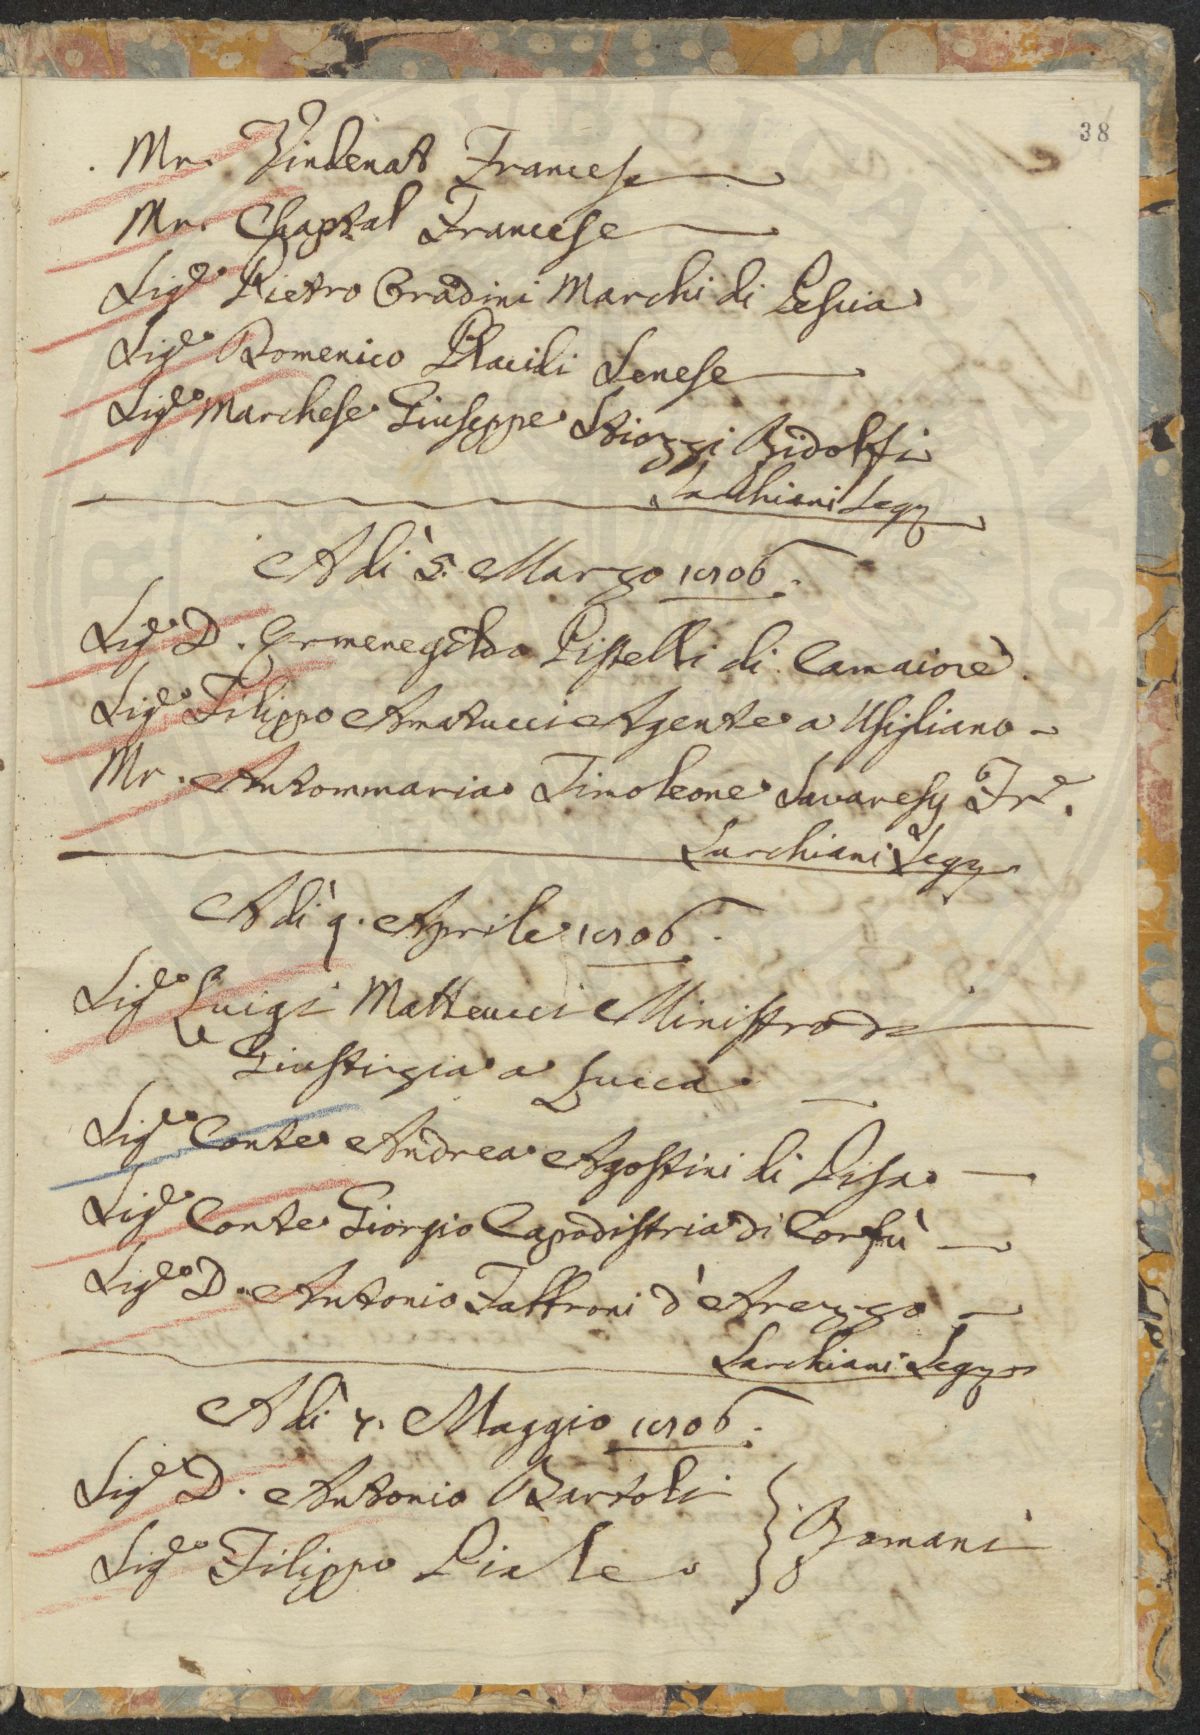 38
Mr. Bindenat Francese
Mr. Chaptal Francese
Sig.e Pietro Gradini Marchi di Pescia
Sig.e Domenico Placidi Senese
Sig.e Marchese Giuseppe Stiozzi Ridolfi
Sarchiani Seg.
Adì 5. Marzo 1806.
Sig.e D. Ermenegildo Pistelli di Camaiore.
Sig.e Filippo Amatucci Agente a Usigliano
Mr. Antommaria Timoleone Savaresy Fr.e
Sarchiani Seg.
Adì 9. Aprile 1806.
Sig.e Luigi Matteucci Ministro di
Giustizia a Lucca
Sig.e Conte Andrea Agostini di Pisa
Sig.e Conte Giorgio Capodistria di Corfù
Sig.e D. Antonio Fabbroni d'Arezzo
Sarchiani Seg.
Adì 7. Maggio 1806.
Sig.e D. Antonio Bartoli
Sig.e Filippo Piale
Romani